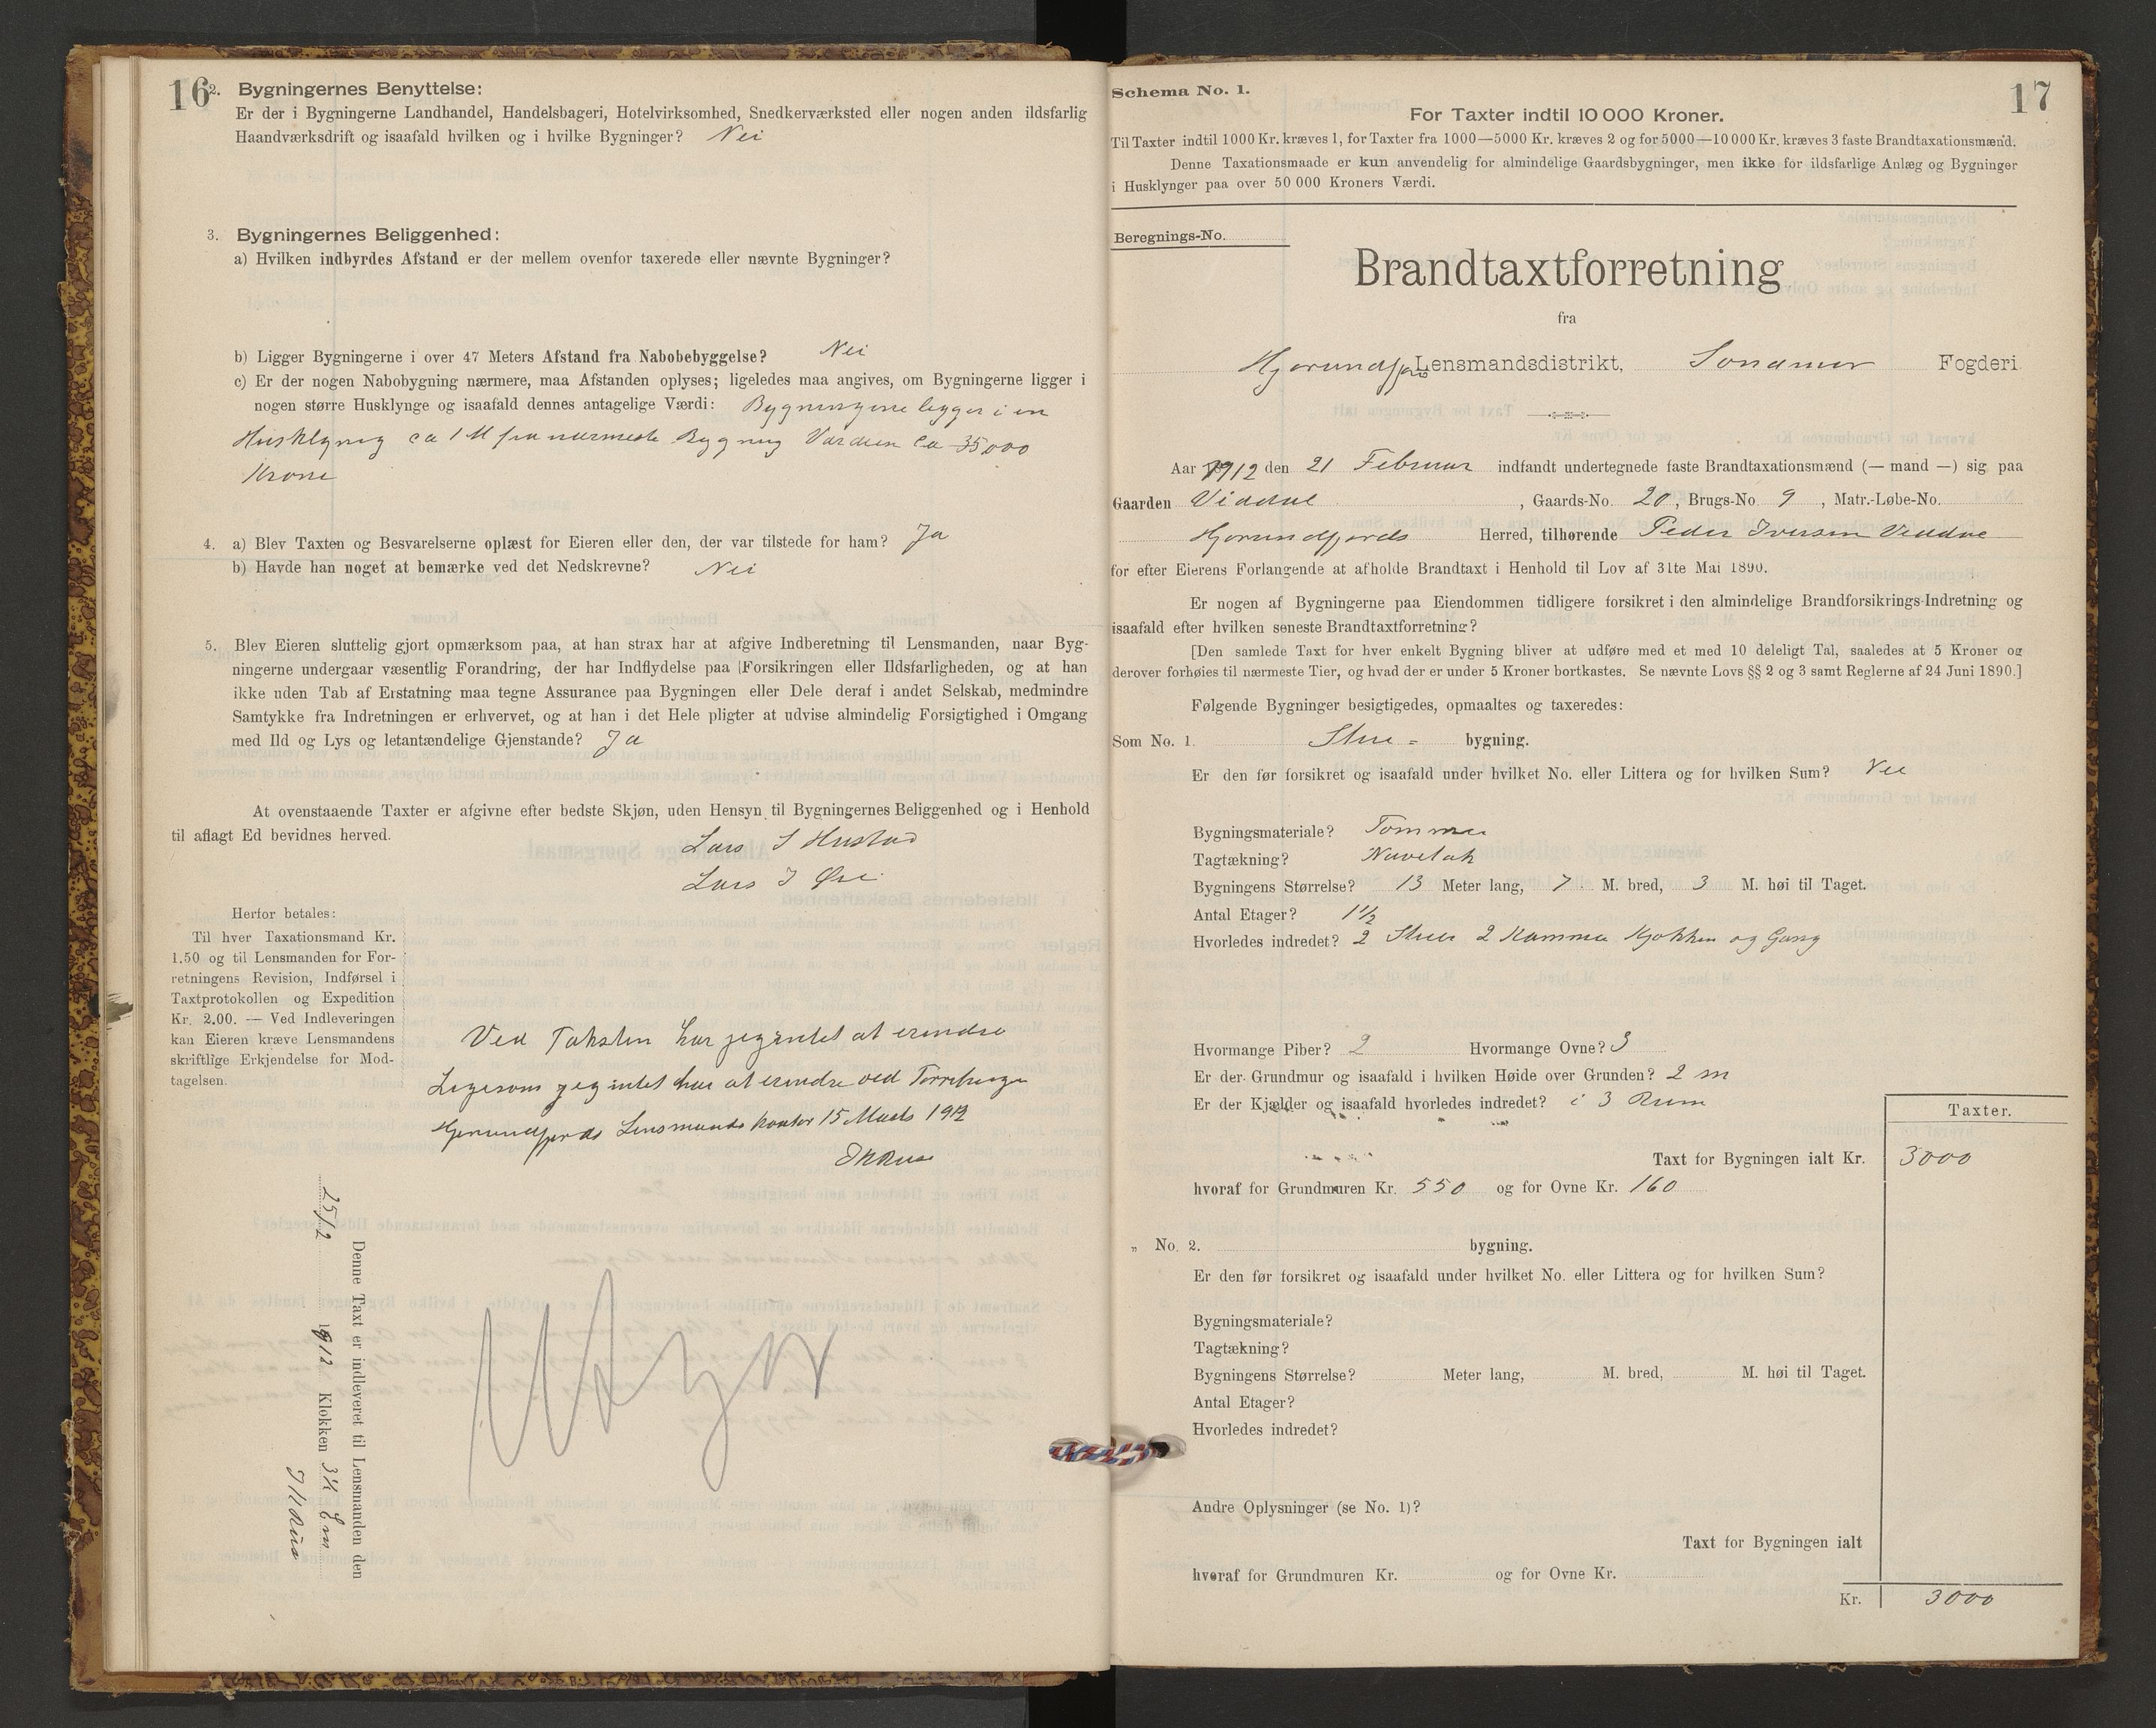 16
2. Bygningernes Benyttelse:
Er der i Bygningerne Landhandel, Handelsbageri, Hotelvirksomhed, Snedkerværksted eller nogen anden ildsfarlig
Haandværksdrift og isaafald hvilken og i hvilke Bygninger? Nei
3. Bygningernes Beliggenhed:
a) Hvilken indbyrdes Afstand er der mellem ovenfor taxerede eller nævnte Bygninger?
b) Ligger Bygningerne i over 47 Meters Afstand fra Nabobebyggelse? Nei
c) Er der nogen Nabobygning nærmere, maa Afstanden oplyses; ligeledes maa angives, om Bygningerne ligger i
nogen større Husklynge og isaafald dennes antagelige Værdi: Bygningerne ligger i en
Husklynng ca 1 M fra nærmeste Bygning Værdien ca 35000
Krone
4. a) Blev Taxten og Besvarelserne oplæst for Eieren eller den, der var tilstede for ham? Ja
b) Havde han noget at bemærke ved det Nedskrevne? Nei
5. Blev Eieren sluttelig gjort opmærksom paa, at han strax har at afgive Indberetning til Lensmanden, naar Byg-
ningerne undergaar væsentlig Forandring, der har Indflydelse paa Forsikringen eller Ildsfarligheden, og at han
ikke uden Tab af Erstatning maa tegne Assurance paa Bygningen eller Dele deraf i andet Selskab, medmindre
Samtykke fra Indretningen er erhvervet, og at han i det Hele pligter at udvise almindelig Forsigtighed i Omgang
med Ild og Lys og letantændelige Gjenstande? Ja
At ovenstaaende Taxter er afgivne efter bedste Skjøn, uden Hensyn til Bygningernes Beliggenhed og i Henhold
til aflagt Ed bevidnes herved.
Lars J Hustad
Lars J Øie
Herfor betales:
Til hver Taxationsmand Kr.
1.50 og til Lensmanden for For-
retningens Revision, Indførsel i
Taxtprotokollen og Expedition
Kr. 2.00. — Ved Indleveringen
kan Eieren kræve Lensmandens
skriftlige Erkjendelse for Mod-
tagelsen.
Ved Taksten har jeg intet at erindre
Ligesom jeg intet har at erindre ved
Hjørundfjords Lensmandskontor 15 Marts 1912
Denne Taxt er indleveret til Lensmanden den
25/2 1912 Klokken 3 1/2 Em
17
Schema No. 1.
For Taxter indtil 10 000 Kroner.
Til Taxter indtil 1000 Kr. kræves 1, for Taxter fra 1000—5000 Kr. kræves 2 og for 5000—10 000 Kr. kræves 3 faste Brandtaxationsmænd.
Denne Taxationsmaade er kun anvendelig for almindelige Gaardsbygninger, men ikke for ildsfarlige Anlæg og Bygninger
i Husklynger paa over 50 000 Kroners Værdi.
Beregnings-No.
Brandtaxtforretning
fra
Hjørundfjord Lensmandsdistrikt, Søndmør Fogderi
Aar 1912 den 21 Februar indfandt undertegnede faste Brandtaxationsmænd (— mand —) sig paa
Gaarden Viddal, Gaards-No. 20, Brugs-No. 9, Matr.-Løbe-No.
Hjørundfjords Herred, tilhørende Peder Iversen Viddal
for efter Eierens Forlangende at afholde Brandtaxt i Henhold til Lov af 31te Mai 1890.
Er nogen af Bygningerne paa Eiendommen tidligere forsikret i den almindelige Brandforsikrings-Indretning og
isaafald efter hvilken seneste Brandtaxtforretning?
[Den samlede Taxt for hver enkelt Bygning bliver at udføre med et med 10 deleligt Tal, saaledes at 5 Kroner og
derover forhøies til nærmeste Tier, og hvad der er under 5 Kroner bortkastes. Se nævnte Lovs §§ 2 og 3 samt Reglerne af 24 Juni 1890.]
Følgende Bygninger besigtigedes, opmaaltes og taxeredes:
Som No. 1. Stue - bygning.
Er den før forsikret og isaafald under hvilket No. eller Littera og for hvilken Sum? Nei
Bygningsmateriale? Tømmer
Tagtækning? Navetak
Bygningens Størrelse? 13 Meter lang, 7 M. bred, 3 M. høi til Taget.
Antal Etager? 1 1/2
Hvorledes indredet? 2 Stuer 2 Kammer Kjøkken og Gang
Hvormange Piber? 2 Hvormange Ovne? 3
Er der Grundmur og isaafald i hvilken Høide over Grunden? 2 m
Er der Kjælder og isaafald hvorledes indredet? i 3 Rum
Taxter.
Taxt for Bygningen ialt Kr. 3000
hvoraf for Grundmuren Kr. 550 og for Ovne Kr. 160
„ No. 2. bygning.
Er den før forsikret og isaafald under hvilket No. eller Littera og for hvilken Sum?
Bygningsmateriale?
Tagtækning?
Bygningens Størrelse? Meter lang, M. bred, M. høi til Taget.
Antal Etager?
Hvorledes indredet?
Andre Oplysninger (se No. 1)?
Taxt for Bygningen ialt
hvoraf for Grundmuren Kr. og for Ovne Kr.
Kr. 3000